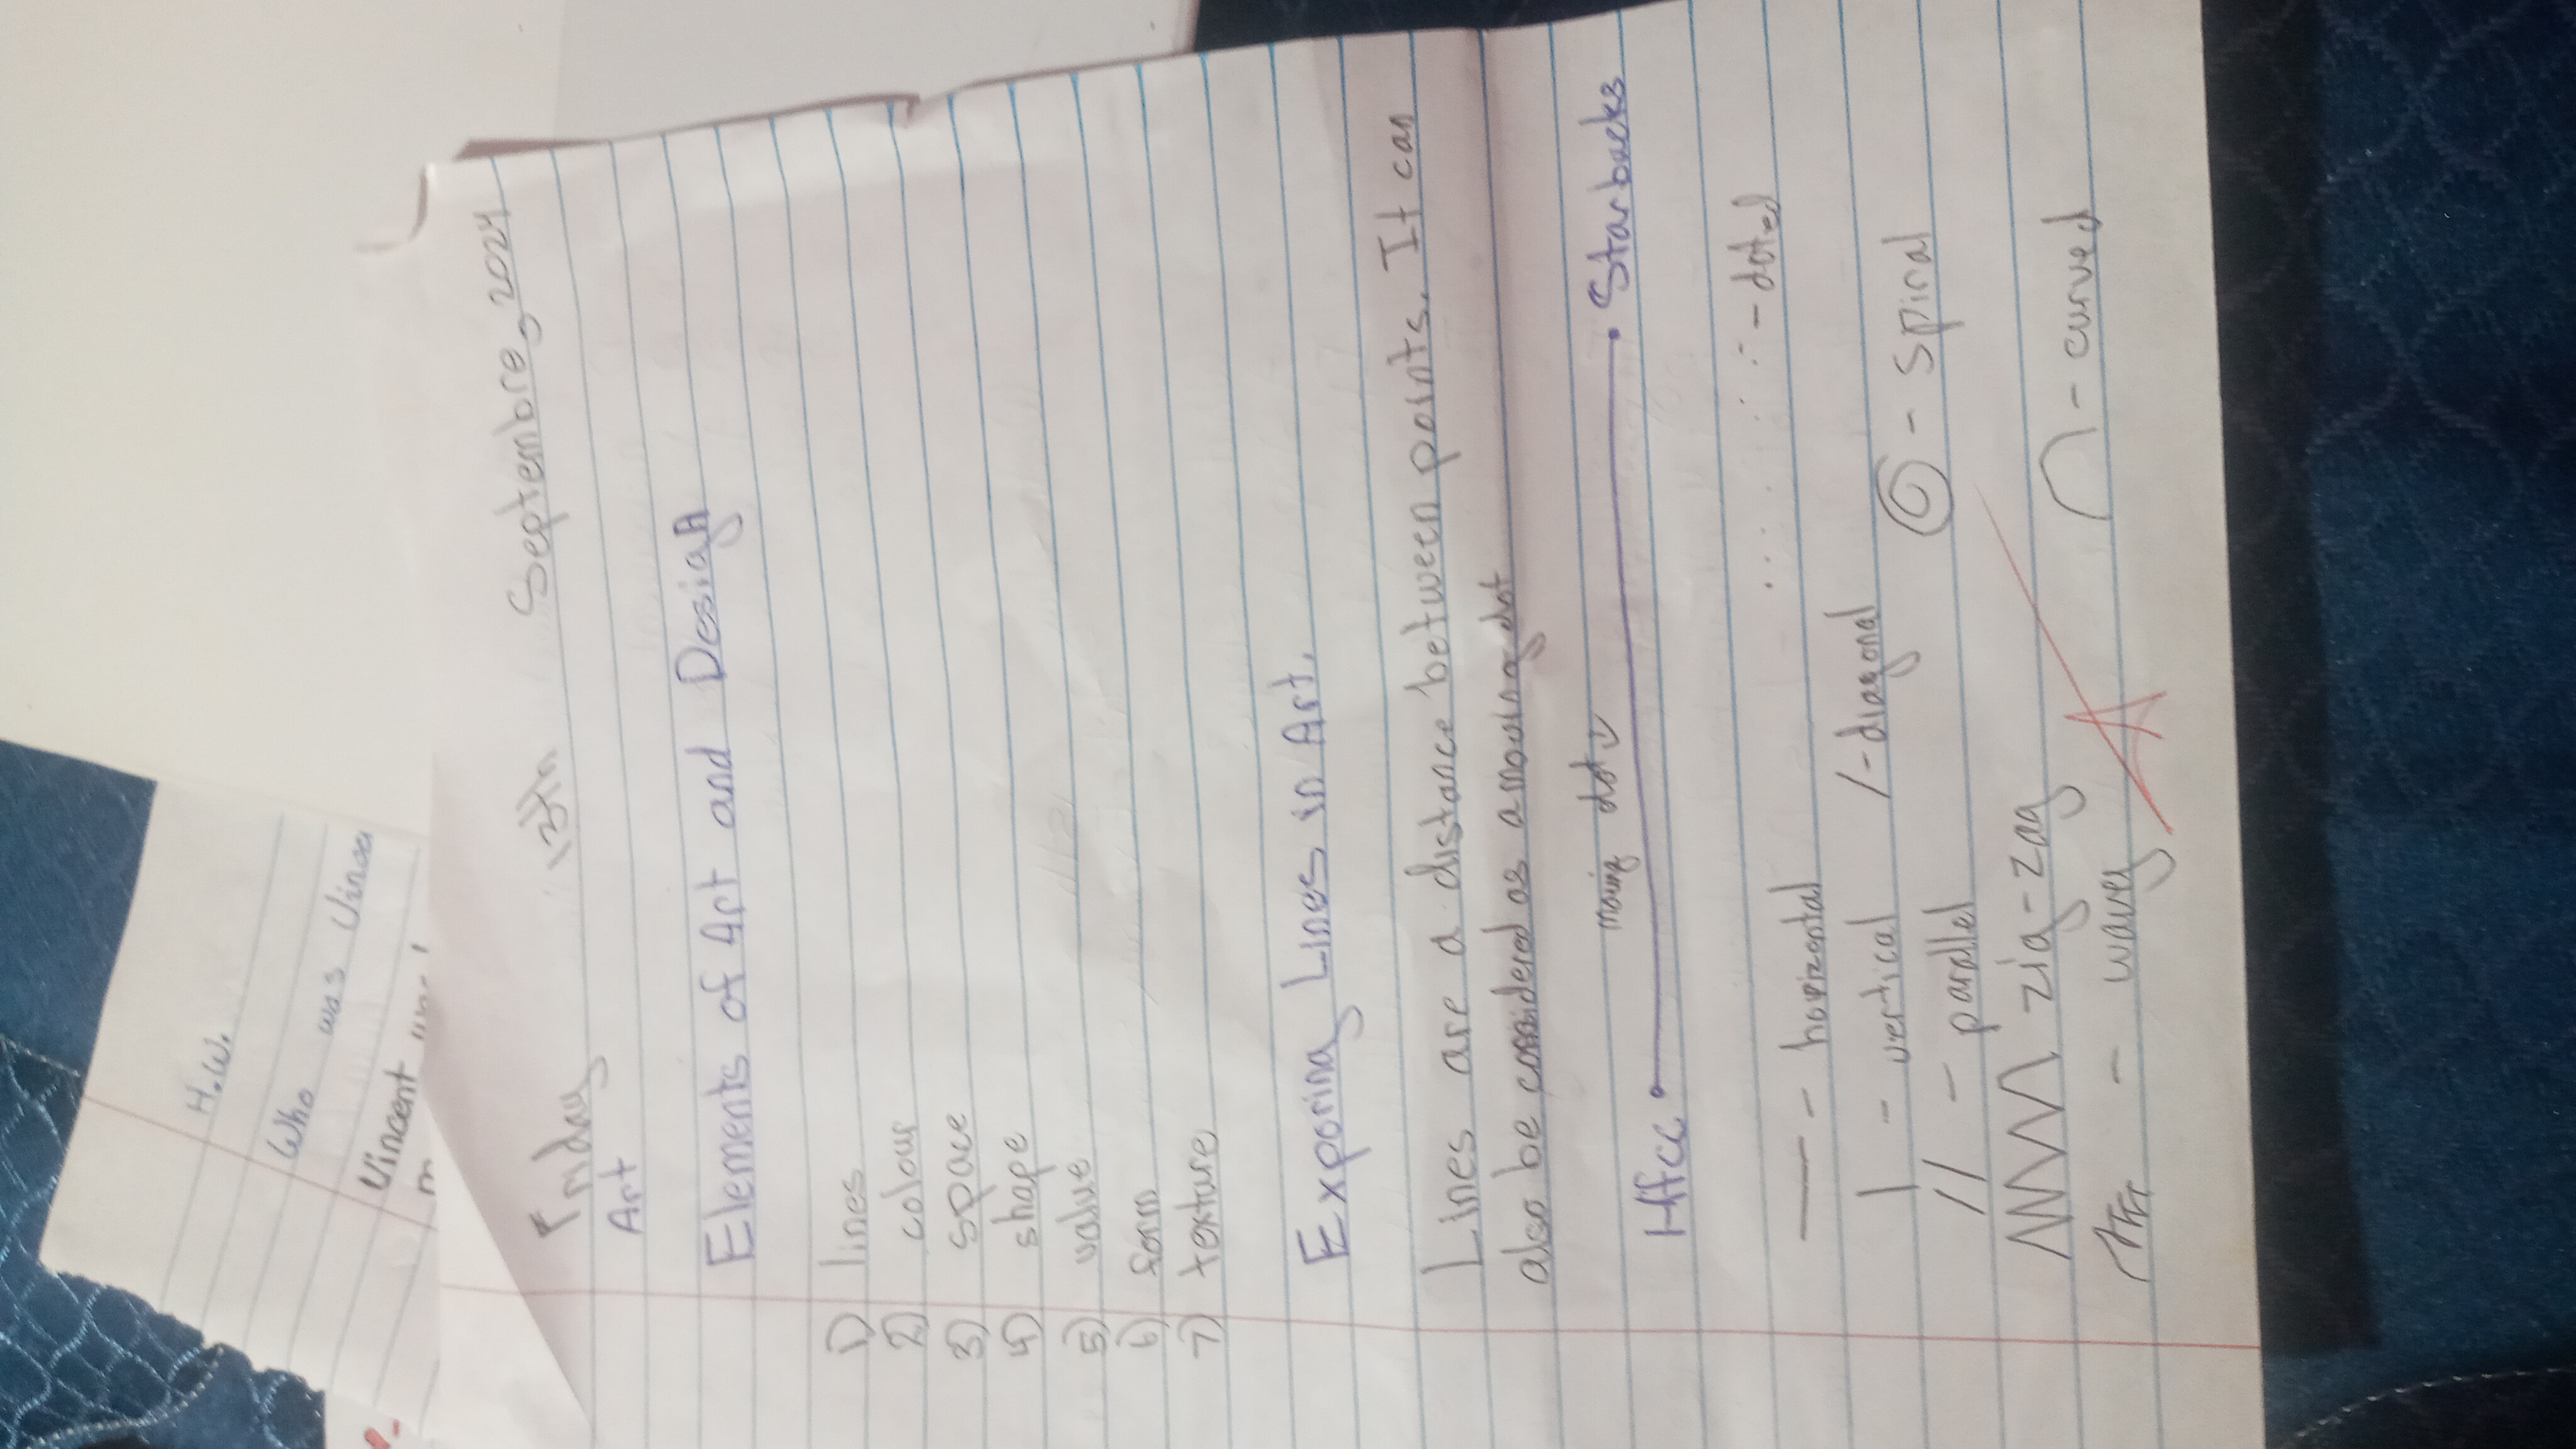 H.W.
Who was
Vincent
Friday 13th Septembre, 2024
Art
Elements of Art and Design
1) lines
2) colour
3) space
4) shape
5) value
6) form
7) texture
Exporing Lines in Art.
Lines are a distance between points. It can
also be considered as a moving dot
moving dot
Hfcc Starbucks
- doted
- horizontal
- vertical /-diagonal
- spiral
- parallel
zig-zag
- curved
- wavy